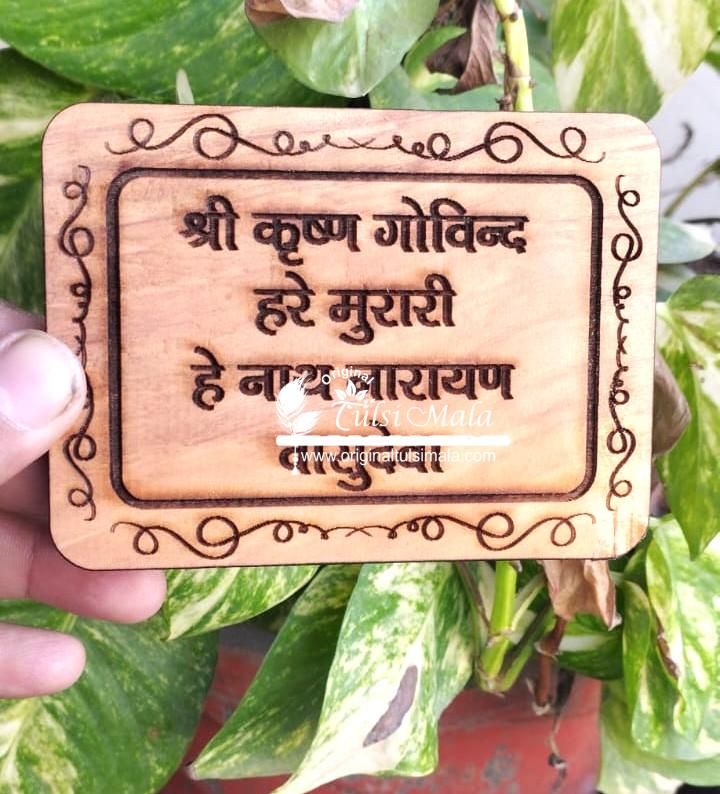 श्री कृष्ण गोविन्द
हरे मुरारी
हे नाथ नारायण
वासुदेवा
Original
Tulsi Mala
www.originaltulsimala.com